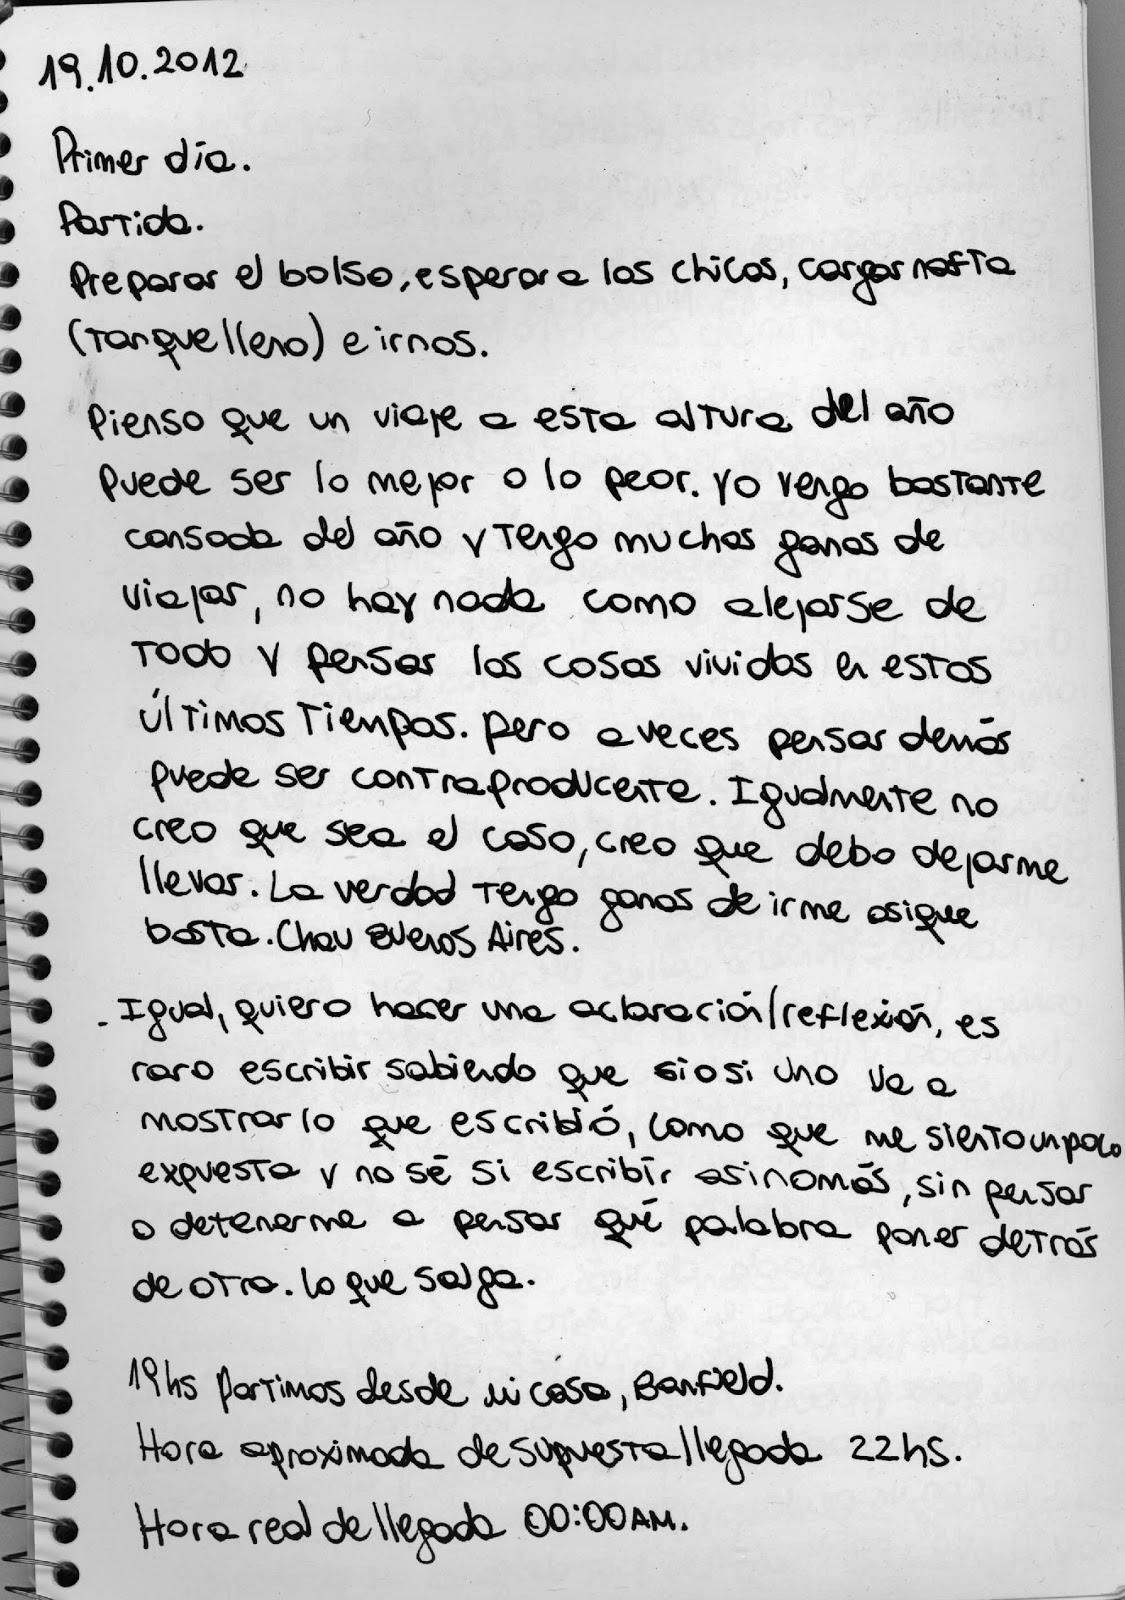 19.10.2012
Primer día.
Partida.
Preparar el bolso, esperar a los chicos, cargar nafta
(tanque lleno) e irnos.
Pienso que un viaje a esta altura del año
puede ser lo mejor o lo peor. yo vengo bastante
cansada del año y tengo muchas ganas de
viajar, no hay nada como alejarse de
todo y pensar las cosas vividas en estos
últimos tiempos. pero a veces pensar demás
puede ser contraproducente. Igualmente no
creo que sea el caso, creo que debo dejarme
llevar. La verdad tengo ganas de irme asique
basta. Chau Buenos Aires.
. Igual, quiero hacer una aclaración/reflexión, es
raro escribir sabiendo que si o si uno va a
mostrar lo que escribió, como que me siento un poco
expuesta y no sé si escribír asinomás, sin pensar
o detenerme a pensar qué palabra poner detrás
de otra. lo que salga.
19hs partimos desde mi casa, Banfield.
Hora aproximada de supuesta llegada 22hs.
Hora real de llegada 00:00AM.